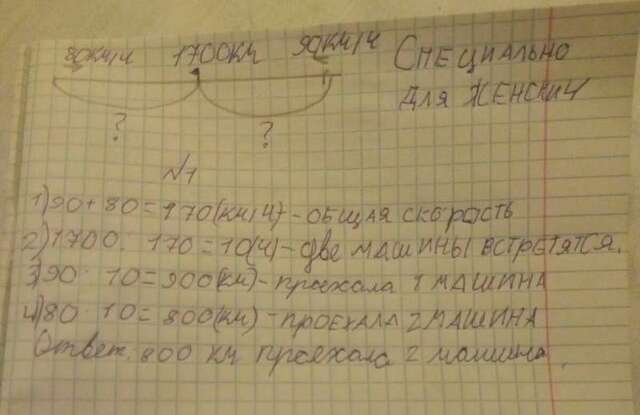 80км/ч 1700км 90км/ч Специально
для женсничи
? ?
№1
1) 90 + 80 = 170(км/ч) - общая скорость
2) 1700 : 170 = 10(ч) - две машины встретятся.
3) 90 10 = 900(км) - проехала 1 машина
4) 80 10 = 800(км) - проехала 2 машина
Ответ: 800 км проехала 2 машина.